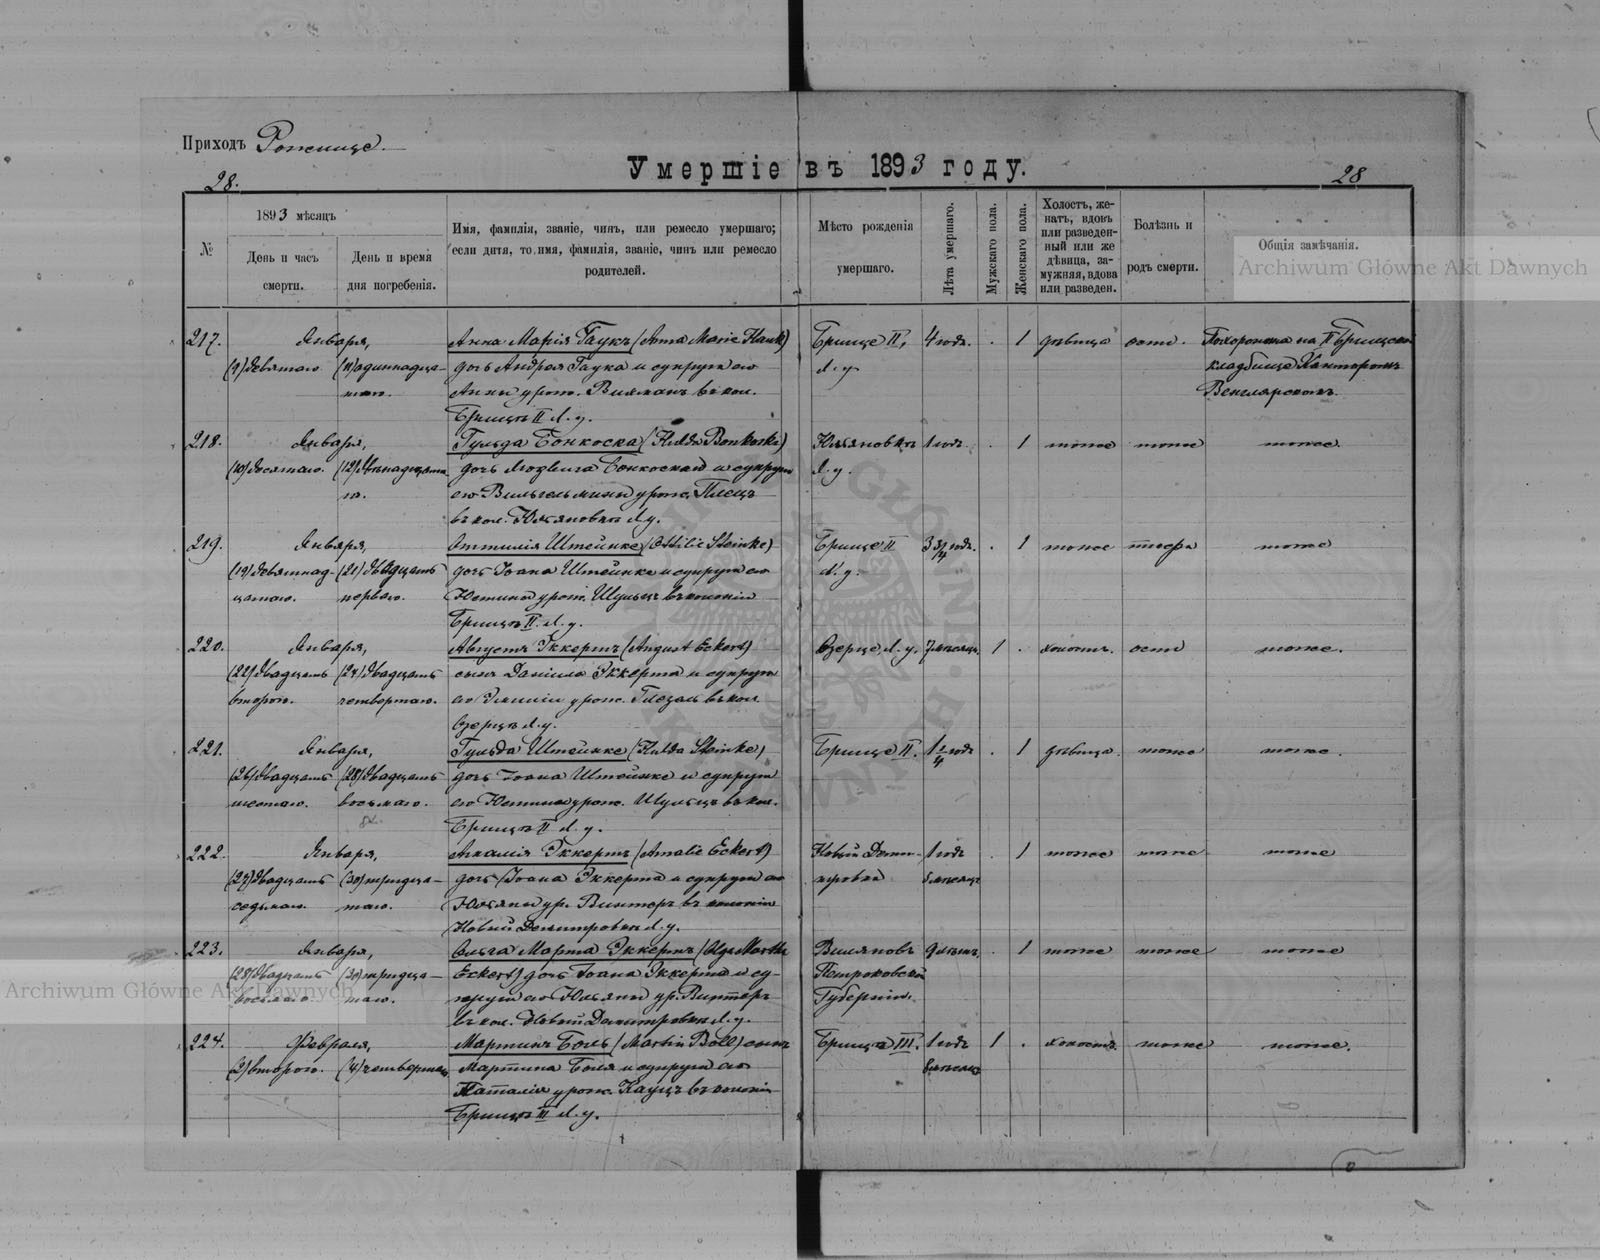 Приходъ Рожище.
Умершіе въ 1893 году.
28.
28
№
1893 мѣсяцъ
День и часъ
смерти.
День и время
дня погребенія.
Имя, фамилія, званіе, чинъ, или ремесло умершаго;
если дитя, то имя, фамилія, званіе, чинъ или ремесло
родителей.
Мѣсто рожденія
умершаго.
Лѣта умершаго.
Мужскаго пола.
Женскаго пола.
Холостъ, же-
натъ, вдовъ
или разведен-
ный или же
дѣвица, за-
мужняя, вдова
или разведен.
Болѣзнь и
родъ смерти.
Общія замѣчанія.
Archiwum Główne Akt Dawnych
217. Января, Анна Марія Гаукъ (Anna Marie Hauk) Брище II, 4 года. . 1 дѣвица Похоронена на II Брищском
(9) девятаго (11) одиннадца- дочь Андрея Гаука и супруги его Л. у. кладбище Канторомъ
таго. Анны урож. въ кол. Венглярскомъ.
Брищѣ II Л. у.
218. Января, Гульда Бонкоска (Hulda Bonkoska) Юльяновка 1 годъ. . 1 тоже тоже тоже
(10) десятаго. (12) двѣнадцата- дочь Людвига и супруги Л. у.
го. его Вильгельмины урож.
въ кол. Юльяновкѣ Л. у.
219. Января, Оттилія Штейнке (Ottilie Steinke) Брище II 3 3/4 года. . 1 тоже тоже
(19) девятнад- (21) двадцать дочь Іоана Штейнке и супруги его Л. у.
цатаго. перваго. Юстины урож. Шульцъ въ колоніи
Брищѣ II. Л. у.
220. Января, Августъ Эккертъ (August Eckert) Озерце, Л. у. 7 мѣсяц. 1 . холостъ. тоже.
(22) двадцать (24) двадцать сынъ Даніила Эккерта и супруги
второго. четвертаго. его Эмиліи урож. въ кол.
Озерцѣ Л. у.
221. Января, Гульда Штейнке (Hulda Steinke) Брище II. 1 1/4 года . 1 дѣвица. тоже тоже.
(26) двадцать (28) двадцать дочь Іоана Штейнке и супруги
шестаго. восьмаго. его Юстины урож. Шульцъ въ кол.
Брищѣ II Л. у.
222. Января, Амалія Эккертъ (Amalie Eckert) Новый Дми- 1 годъ . 1 тоже тоже тоже
(27) двадцать (30) тридца- дочь Іоана Эккерта и супруги его
седьмаго. таго. Юльяны ур. Винтеръ въ колоніи
Л. у.
223. Января, Ольга Марта Эккертъ (Olga Martha 9 лѣтъ. . 1 тоже тоже тоже
(28) двадцать (30) тридца- Eckert) дочь Іоана Эккерта и су- Петроковской
восьмаго. таго. пруги его Юльяны ур. Винтеръ Губерніи.
въ кол. Л. у.
Archiwum Główne Akt Dawnych
224. Февраля, Мартинъ Боль (Martin Boll) сынъ Брище III. 1 годъ 1 . холостъ. тоже тоже.
(2) второго. (4) четвертаго Мартина Боля и супруги его
Наталіи урож. Кауцъ въ колоніи
Брищѣ III Л. у.